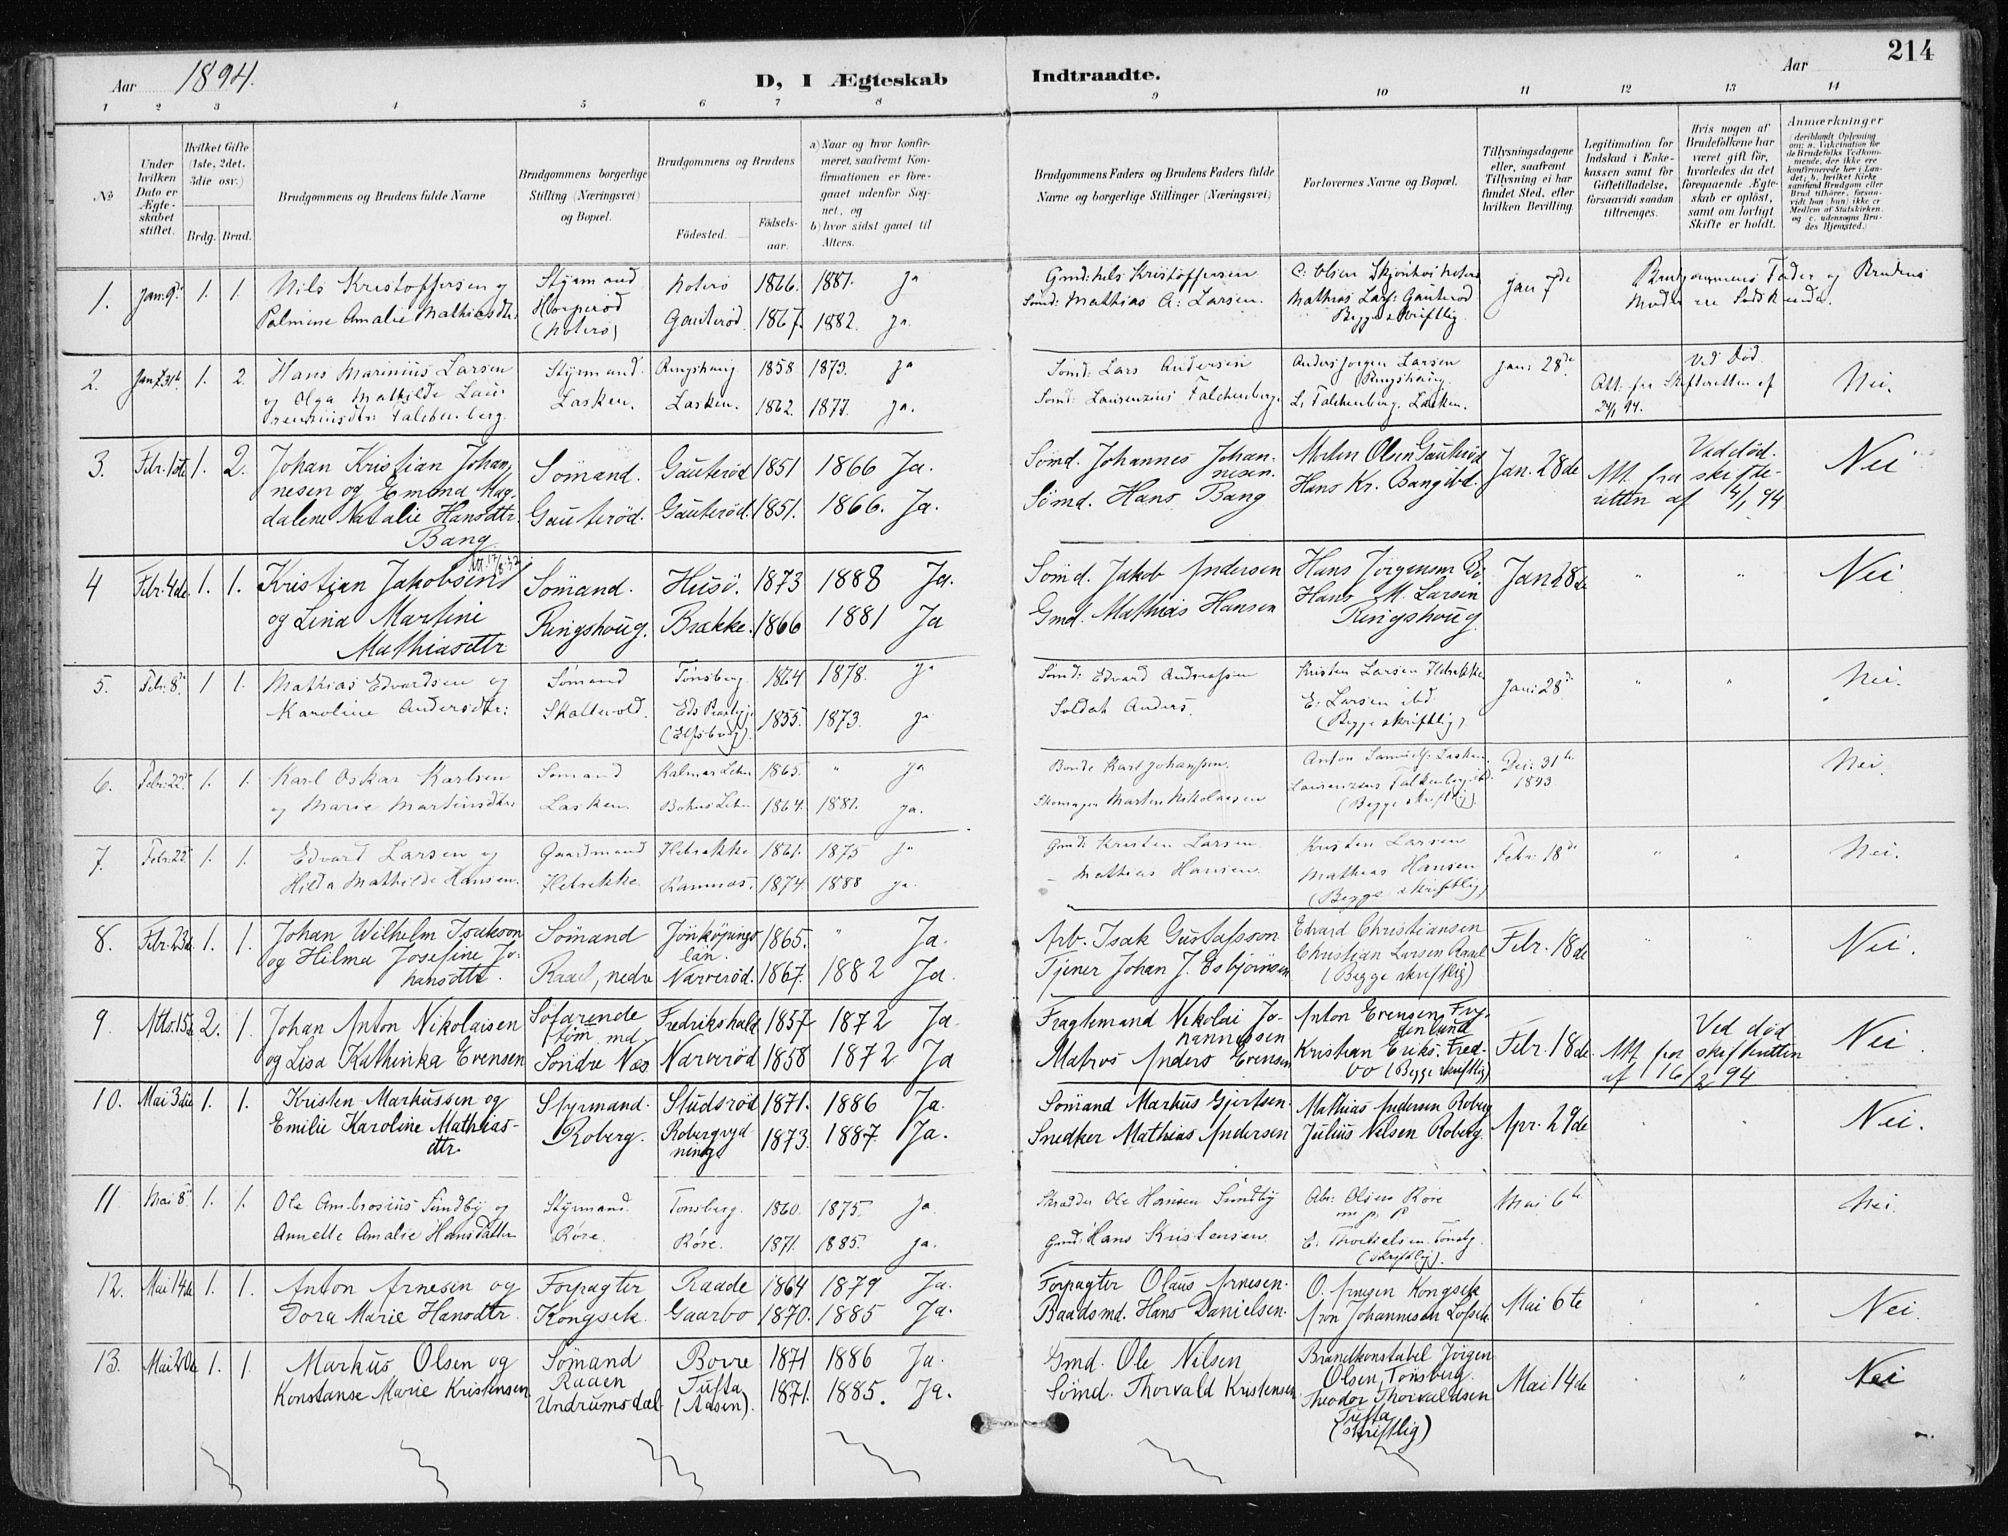 214
Aar 1894.
D, I Ægteskab Indtraadte.
Aar
1 2 3 4 5 6 7 8 9 10 11 12 13 14
No.
Under hvilken Dato er Ægteskabet stiftet.
Hvilket Gifte (1ste, 2det, 3die osv.)
Brdg. Brud.
Brudgommens og Brudens fulde Navne
Brudgommens borgerlige Stilling (Næringsvei) og Bopæl.
Brudgommens og Brudens
Fødested. Fødselsaar.
a) Naar og hvor konfirmeret, saafremt Konfirmationen er foregaaet udenfor Sognet, og
b) hvor sidst gaaet til Alters.
Brudgommens Faders og Brudens Faders fulde Navne og borgerlige Stillinger (Næringsvei)
Forlovernes Navne og Bopæl.
Tillysningsdagene eller, saafremt Tillysning ei har fundet Sted, efter hvilken Bevilling.
Legitimation for Indskud i Enkekassen samt for Giftetilladelse, forsaavidt saadan tiltrænges.
Hvis nogen af Brudefolkene har været gift før, hvorledes da det foregaaende Ægteskab er opløst, samt om lovligt Skifte er holdt.
Anmærkninger
1. Jan: 9de 1. 1. Nils Kristoffersen og Styrmand Noterø 1866. 1881. ja Gmd: Nels Kristoffersen Jan 7de Brudgommens Fader og Brudens
Palmine Amalie Mathiasdtr: Horperød (Noterø) Gauterød. 1867. 1882. ja. Sømd: Mathias A: Larsen. Mathias Lars: Gauterød Begge skriftlig. Moder ere Sødskende.
2. Jan: 31te 1. 2. Hans Marinius Larsen Styrmand. Ringshaug 1858 1873. ja Sømd: Lars Andersen Anders Jørgen Larsen Ringshaug. Jan: 28de Ved Død. Nei.
og Olga Mathilde Laurenziusdtr: Falchenberg. Lasken. Lasken. 1862. 1877. ja. Sømd: Laurenzius Falchenberg. L. Falchenberg. Lasken. Att. fra Skifteretten af 24/1 94.
3. Febr. 1ste 1. 2. Johan Kristian Johannesen og Emma Magdalene Natalie Hansdtr. Bang Sømand. Gauterød. Gauterød 1851 1866 Ja. Sømd. Johannes Johannesen. Morten Olsen Gauterød Jan. 28de Ved død. Nei
Gauterød. 1851. 1866. Ja. Sømd. Hans Bang Hans Kr. Bang ibd. Att. fra skifteretten af 4/1 94
4 Febr. 4de 1. 1. Kristian Jakobsen Sømand. Husö. 1873 1888 Ja. Sømd. Jakob Andersen Hans Jørgensen Jan 28de " " Nei
og Lina Martini Mathiasdtr Ringshoug. Bakke. 1866 1881 Ja Gmd. Mathias Hansen Hans M. Larsen Ringshoug
5. Febr: 8de 1 1. Mathias Edvardsen og Sømand Tønsberg 1864 1878. ja Sømd: Edvard Andreassen Kristen Larsen Ilebrekke Jan: 28de " " Nei.
Karoline Andersdtr: Skallevold. (Elfsborg). 1855. 1873. ja Soldat Anders. E: Larsen ibd (Begge skriftlig)
6. Febr: 22de 1. 1. Karl Oskar Karlsen Sømand Kalmar Lehn 1865. " ja Bonde Karl Johansson. Anton Samuels: Lasken Dec: 31te 1893. Nei.
og Marie Martinsdtr: Lasken. Bohus Lehn 1864. 1881. ja. Skomager Martin Nikolaisen Laurenzius Falkenberg ibd. (Begge skriftlig).
7. Febr: 22de 1. 1. Edvard Larsen og Gaardmand Ilebrekke 1861. 1875 ja Gmd: Kristen Larsen. Kristen Larsen Febr: 18de " " Nei.
Hilda Mathilde Hansen. Ilebrekke. Ramnæs. 1874. 1888 ja. – Mathias Hansen. Mathias Hansen (Begge skriftlig)
8. Febr. 23de 1. 1. Johan Wilhelm Isakson Sømand Jönköpings län. 1865. " Ja. Arb. Isak Gustafsson Edvard Christiansen Febr. 18de " " Nei.
og Hilma Josefine Johansdtr. Raael, nedre Narverød. 1867. 1882 Ja. Tjener Johan J. Esbjörnsen Christian Larsen Raael (Begge skriftlig)
9. Mts. 15de 2. 1. Johan Anton Nikolaisen Søfarende tøm. md. Fredrikshald 1857 1872 Ja. Fragtemand Nikolai Johannessen Anton Evensen Febr. 18de Ved død Nei
og Lisa Kathinka Evensen Søndre Næs Narverød 1858 1872 Ja Matros Anders Evensen Kristian Eriks. Fredbo (Begge skriftlig) Att. fra skifteretten af 16/2 94
10. Mai 3die 1. 1. Kristen Markussen og Styrmand. Studsrød 1871. 1886 Ja. Sømand Markus Gjertsen. Mathias Andersen Roberg Apr. 29de " " Nei.
Emilie Karoline Mathiasdtr. Roberg. Robergrydning 1873. 1887. Ja. Snedker Mathias Andersen Julius Nilsen Roberg.
11 Mai 8de 1. 1. Ole Ambrosius Sundby og Styrmand. Tønsberg. 1860. 1875. ja. Skrædder Ole Hansen Sundby Abr: Olsen Røre m. p. P. Mai 6te Nei.
Annette Amalie Hansdatter Røre. Røre. 1871. 1885. ja. Gmd: Hans Kristensen. E: Tønsbg. (skriftlig).
12. Mai 14de 1. 1. Anton Arnesen og Forpagter Raade 1864 1879 Ja. Forpagter Olaus Arnesen. O. Arnesen Kongseik Mai 6te " " Nei
Dora Marie Hansdtr. Kongseik. Gaarbo 1870. 1885 Ja. Baadsmd. Hans Danielsen. Aron Johannesen
13. Mai 20de 1. 1. Markus Olsen og Sømand Borre 1871 1886 Ja. Gmd. Ole Nilsen Brandkonstabel Jörgen Olsen, Tønsberg. Mai 14de " " Nei
Konstanse Marie Kristensen Raaen Undrumsdal Tufta (Aasen). 1871. 1885. Ja. Sømd. Thorvald Kristensen Theodor Thorvaldsen Tufta (skriftlig)